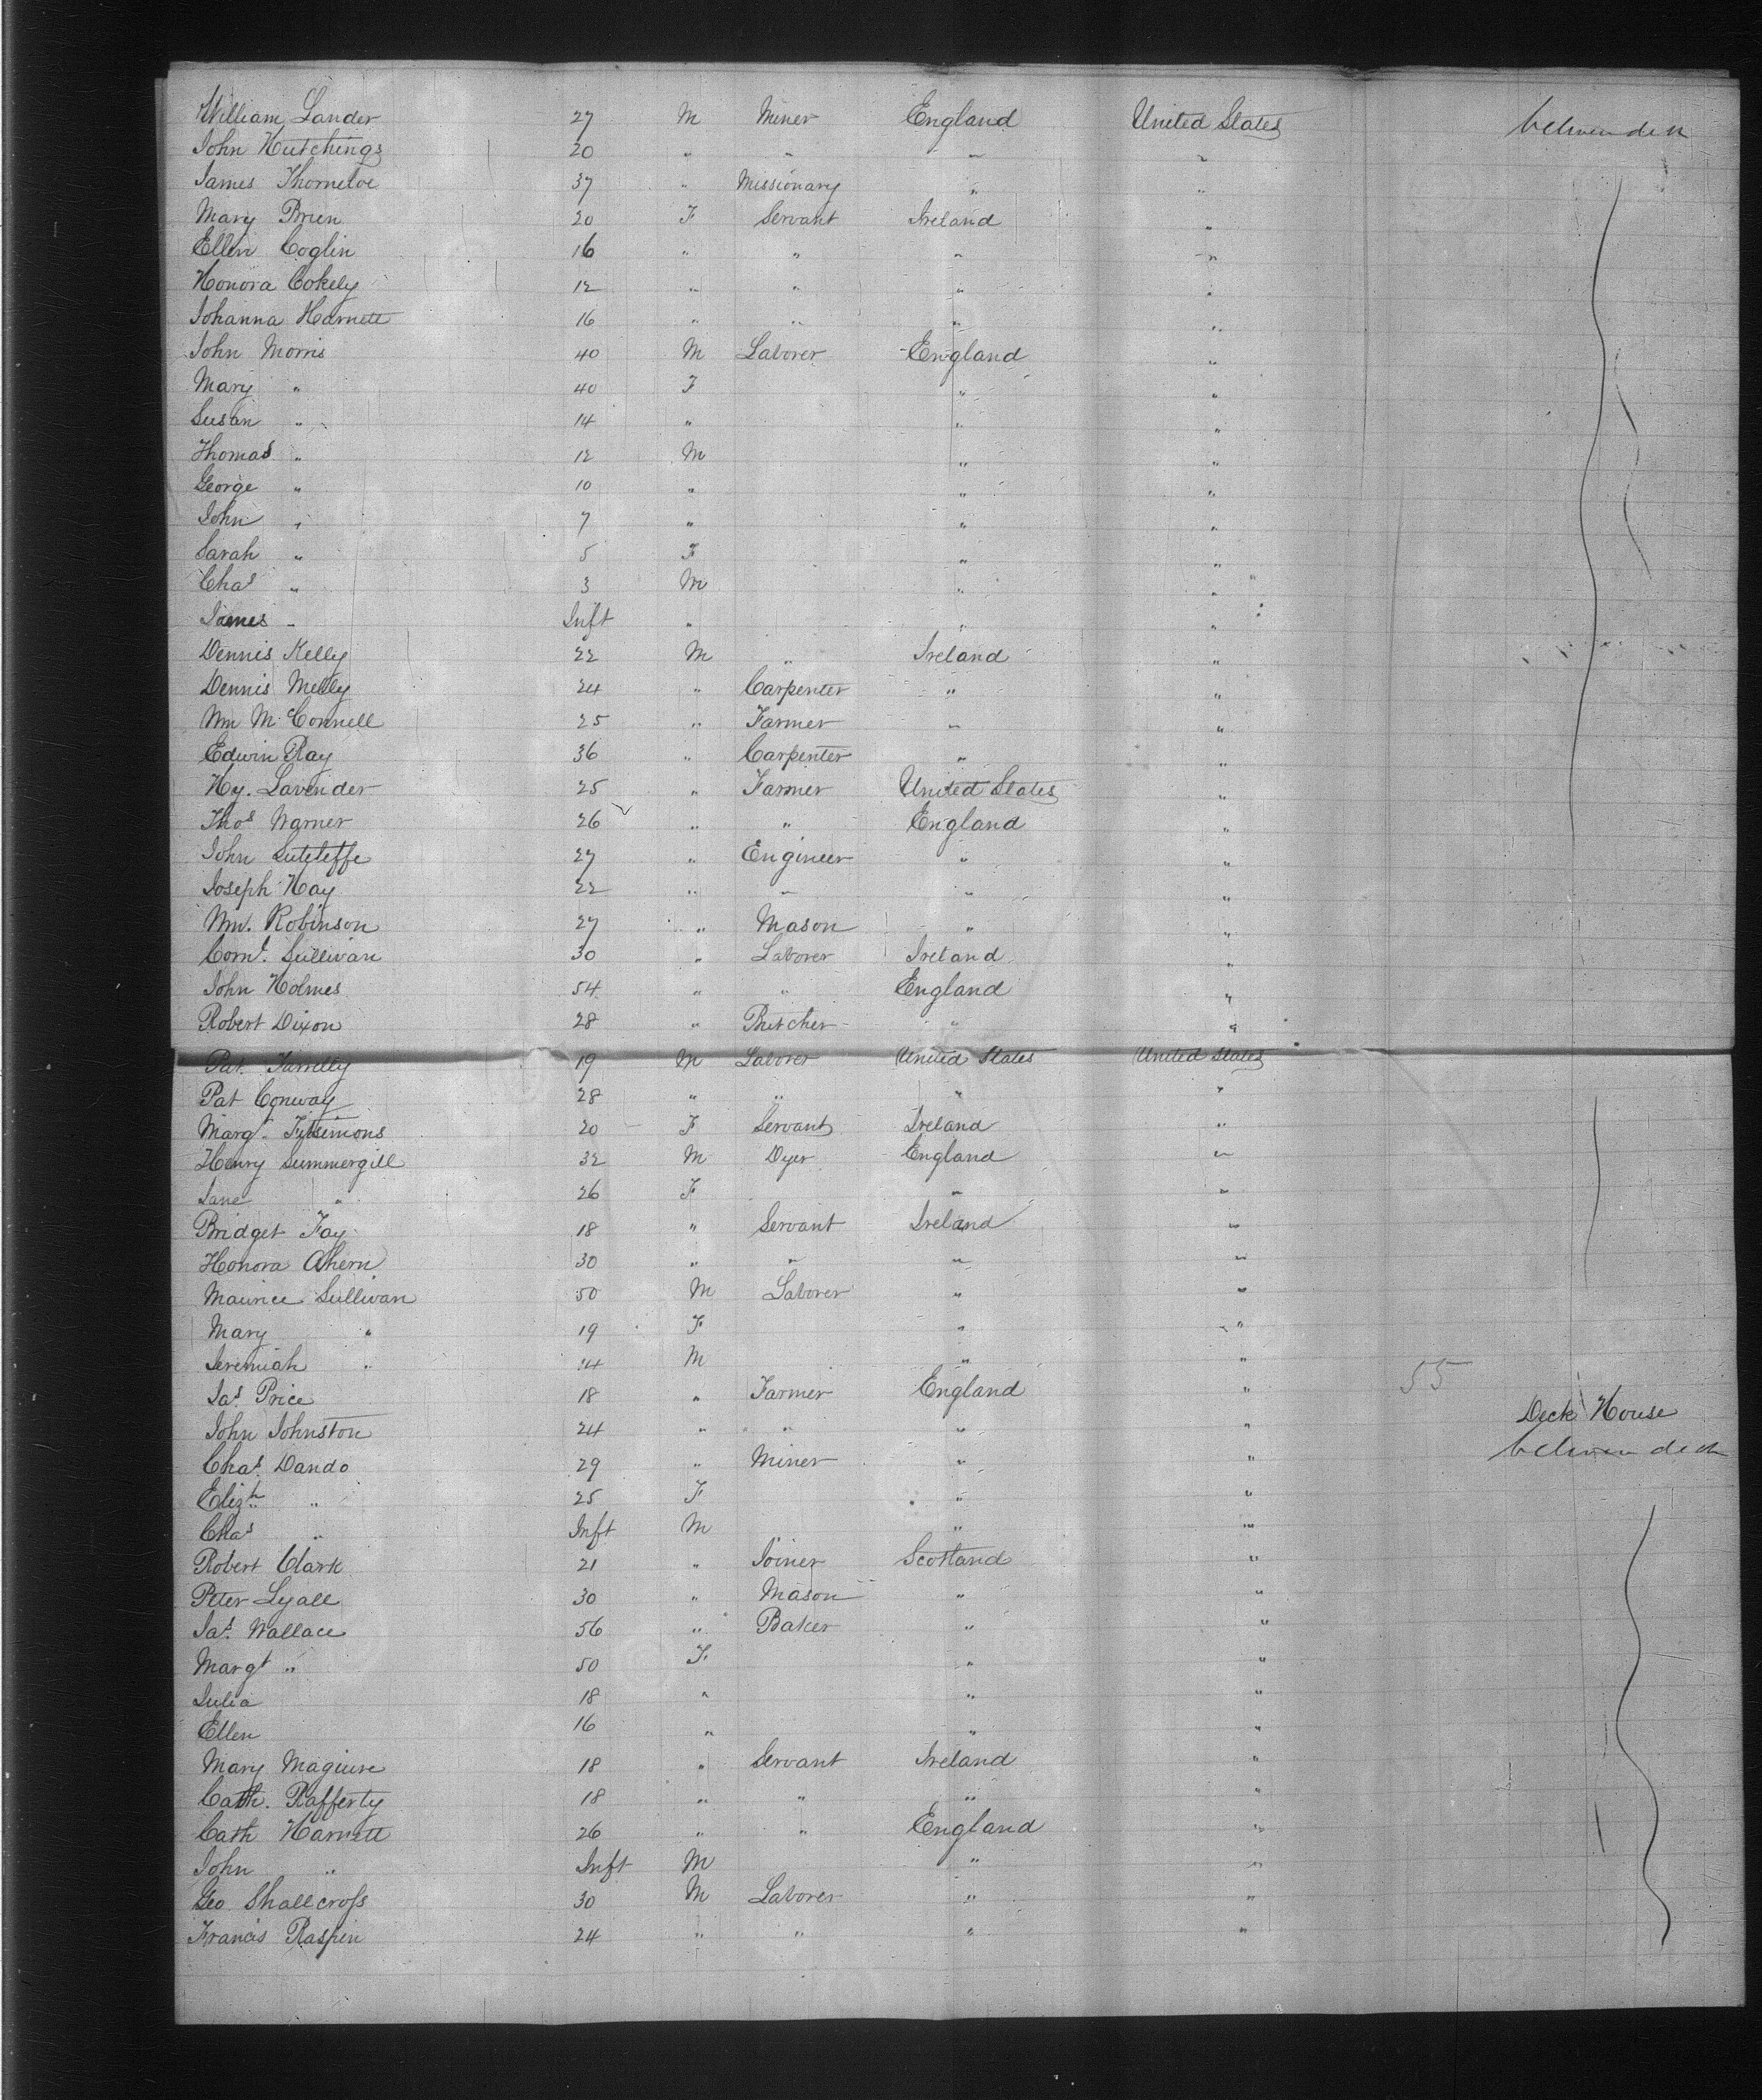 William Lander 27 M Miner England United States between deck
John Hutchings 20 " " " "
James Thorneloe 37 " Missionary " "
Mary Brien 20 F Servant Ireland "
Ellen Coglin 16 " " " "
Honora Cokely 12 " " " "
Johanna Harnett 16 " " " "
John Morris 40 M Laborer England "
Mary " 40 F " "
Susan " 14 " " "
Thomas " 12 M " "
George " 10 " " "
John " 7 " " "
Sarah " 5 F " "
Chas " 3 M " "
James " Inft " " "
Dennis Kelly 22 M " Ireland "
Dennis Melly 24 " Carpenter " "
Wm McConnell 25 " Farmer " "
Edwin Ray 36 " Carpenter " "
Hy. Lavender 25 " Farmer United States "
Thos Warner 26 " " England "
John Sutcleffe 27 " Engineer " "
Joseph Hay 22 " " " "
Wm. Robinson 27 " Mason " "
Corns. Sullivan 30 " Laborer Ireland "
John Holmes 54 " " England "
Robert Dixon 28 " Butcher " "
Pat. Farrelly 19 M Laborer United States United States
Pat Conway 28 " " " "
Margt. Fitsimons 20 F Servant Ireland "
Henry Summergill 32 M Dyer England "
Jane " 26 F " "
Bridget Fay 18 " Servant Ireland "
Honora Ahern 30 " " " "
Maurice Sullivan 50 M Laborer " "
Mary " 19 F " "
Jeremiah " 14 M " "
Jas. Price 18 " Farmer England " 55
John Johnston 24 " " " " Deck House
Chas. Dando 29 " Miner " " between deck
Elizh " 25 F " "
Chas " Inft M " "
Robert Clark 21 " Joiner Scotland "
Peter Lyall 30 " Mason " "
Jas. Wallace 56 " Baker " "
Margt " 50 F " "
Julia 18 " " "
Ellen 16 " " "
Mary Maguire 18 " Servant Ireland "
Cath. Rafferty 18 " " " "
Cath Harnett 26 " " England "
John " Inft M " "
Geo Shallcross 30 M Laborer " "
Francis Raspin 24 " " " "